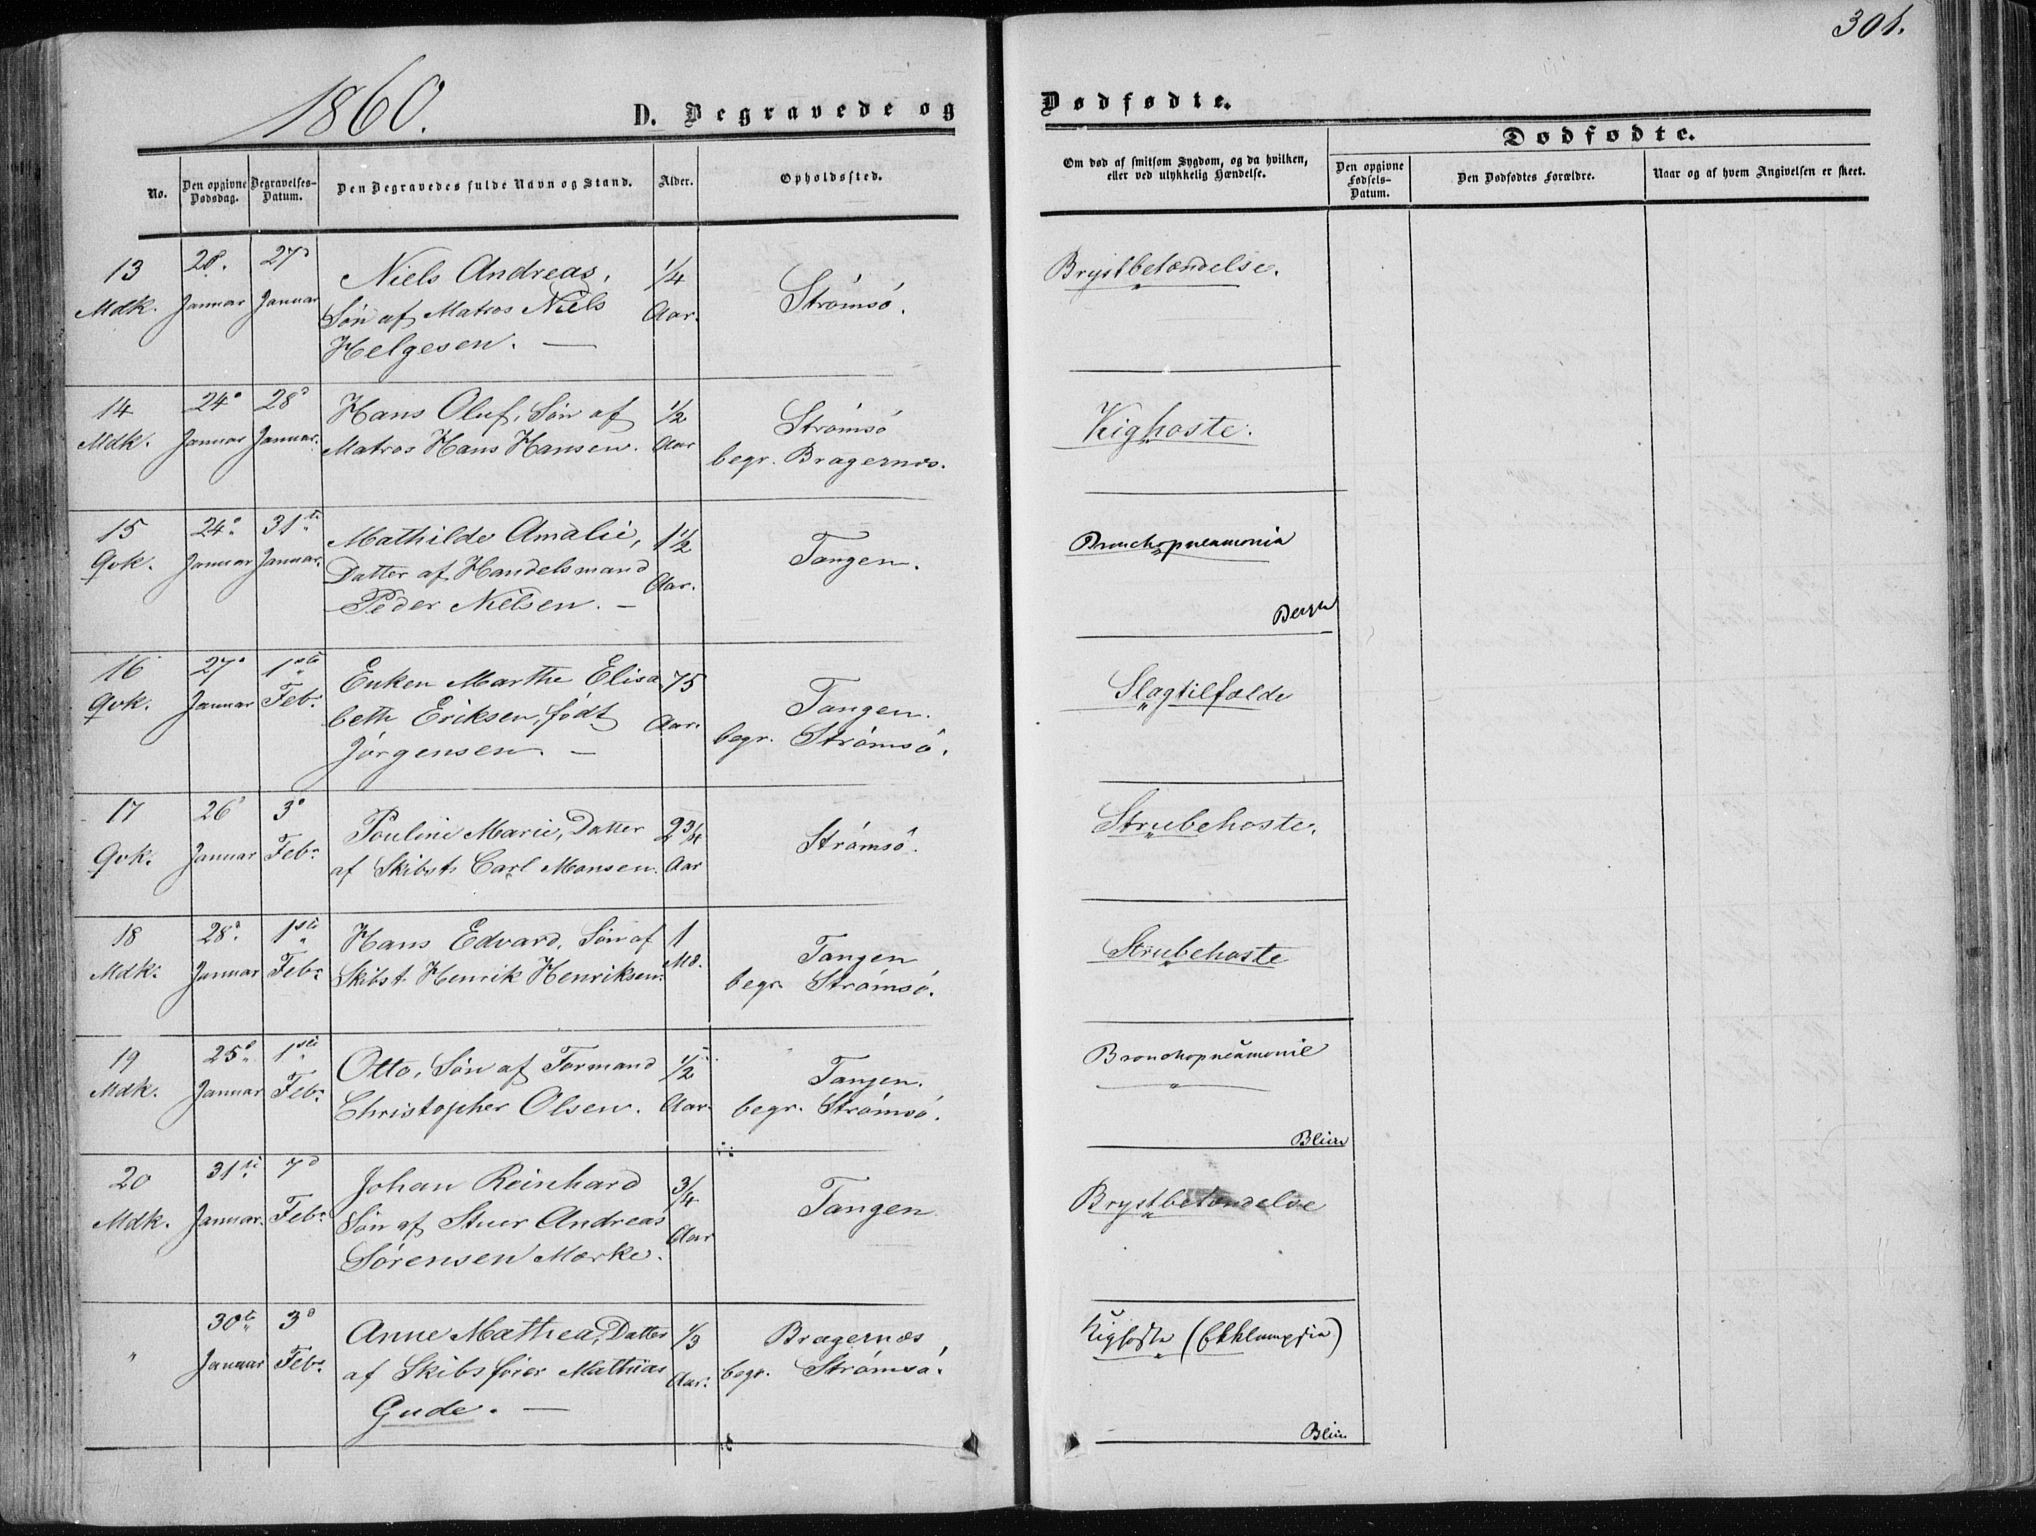 301.
1860.
D. Begravede og Dødfødte.
No.
Den opgivne Dødsdag.
Begravelses-Datum.
Den Begravedes fulde Navn og Stand.
Alder.
Opholdssted.
Om død af smitsom Sygdom, og da hvilken,
eller ved ulykkelig Hændelse.
Dødfødte.
Den opgivne Fødsels-Datum.
Den Dødfødtes Forældre.
Naar og af hvem Angivelsen er skeet.
13 Mdk.
Januar
27d Januar
Niels Andreas,
Søn af Matros Niels
Helgesen. —
1/4 Aar.
Strømsö.
Brystbetændelse.
14 Mdk.
24d Januar
28d Januar.
Hans Oluf, Søn af
Matros Hans Hansen.
1/2 Aar
Strømsö
begr. Bragernæs.
Kighoste.
15 Qvk.
24d Januar
31te Januar.
Mathilde Amalie,
Datter af Handelsmand
Peder Nielsen. —
1 1/2 Aar.
Tangen.
Bronchopneumonia
16 Qvk.
27d Januar
1ste Feb.
Enken Marthe Elisa
beth Eriksen, født
Jørgensen. —
75 Aar.
Tangen.
begr. Strømsö.
Slagtilfælde
17 Qvk.
26d Januar
3d Feb.
Pouline Marie, Datter
af Skibst. Carl Monsen.
2 3/4 Aar
Strømsö.
Strubehoste.
18 Mdk.
28d Januar
1ste Feb.
Hans Edvard, Søn af
Skibst. Henrik Henriksen.
1 Md.
Tangen
begr. Strømsö.
Strubehoste
19 Mdk.
25d Januar
1ste Feb.
Otto, Søn af Formand
Christopher Olsen.
1/2 Aar.
Tangen.
begr. Strømsö.
Bronchopneumonie
20 Mdk.
31te Januar.
7d Feb.
Johan Reinhard
Søn af Stuer Andreas
Sørensen Mørke.
3/4 Aar
Tangen
Brystbetændelse
"
30te Januar
3d Feb.
Anne Mathea, Datter
af Skibsfører Mathias
Gude. —
1/3 Aar.
Bragernæs
begr. Strømsö.
Kighoste (Ekklampsia)